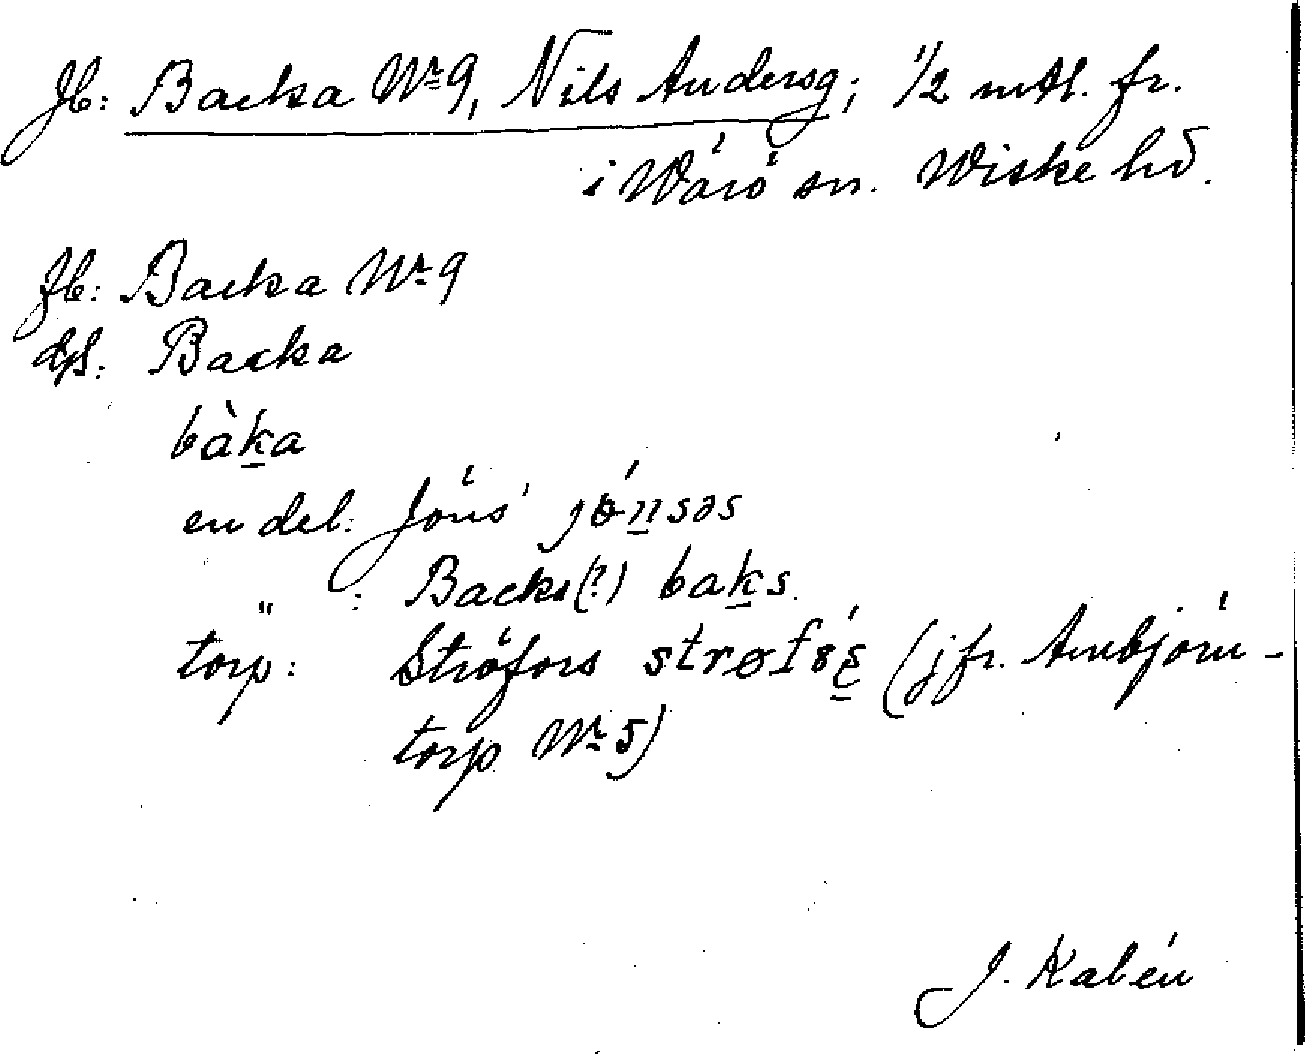 Jb: Backa Nr 9, Nils Andersg; 1/2 mtl. fr.
i Wärö sn. Wiske hd.
Jb: Backa Nr 9
ds: Backa
bàka
en del: Jöns' jǿnsəs
" : Backs(?) baks.
torp: Ströfors
(jfr. Ambjörn-
torp Nr 5)
J. Kalén